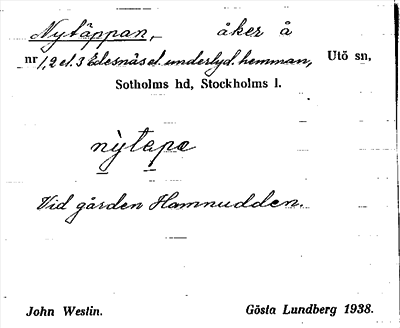 Nytäppan, åker å
nr 1, 2 el. 3 Edesnäs el. underlyd. hemman, Utö sn,
Sotholms hd, Stockholms l.
nỳtapα
Vid gården Hamnudden.
John Westin. Gösta Lundberg 1938.